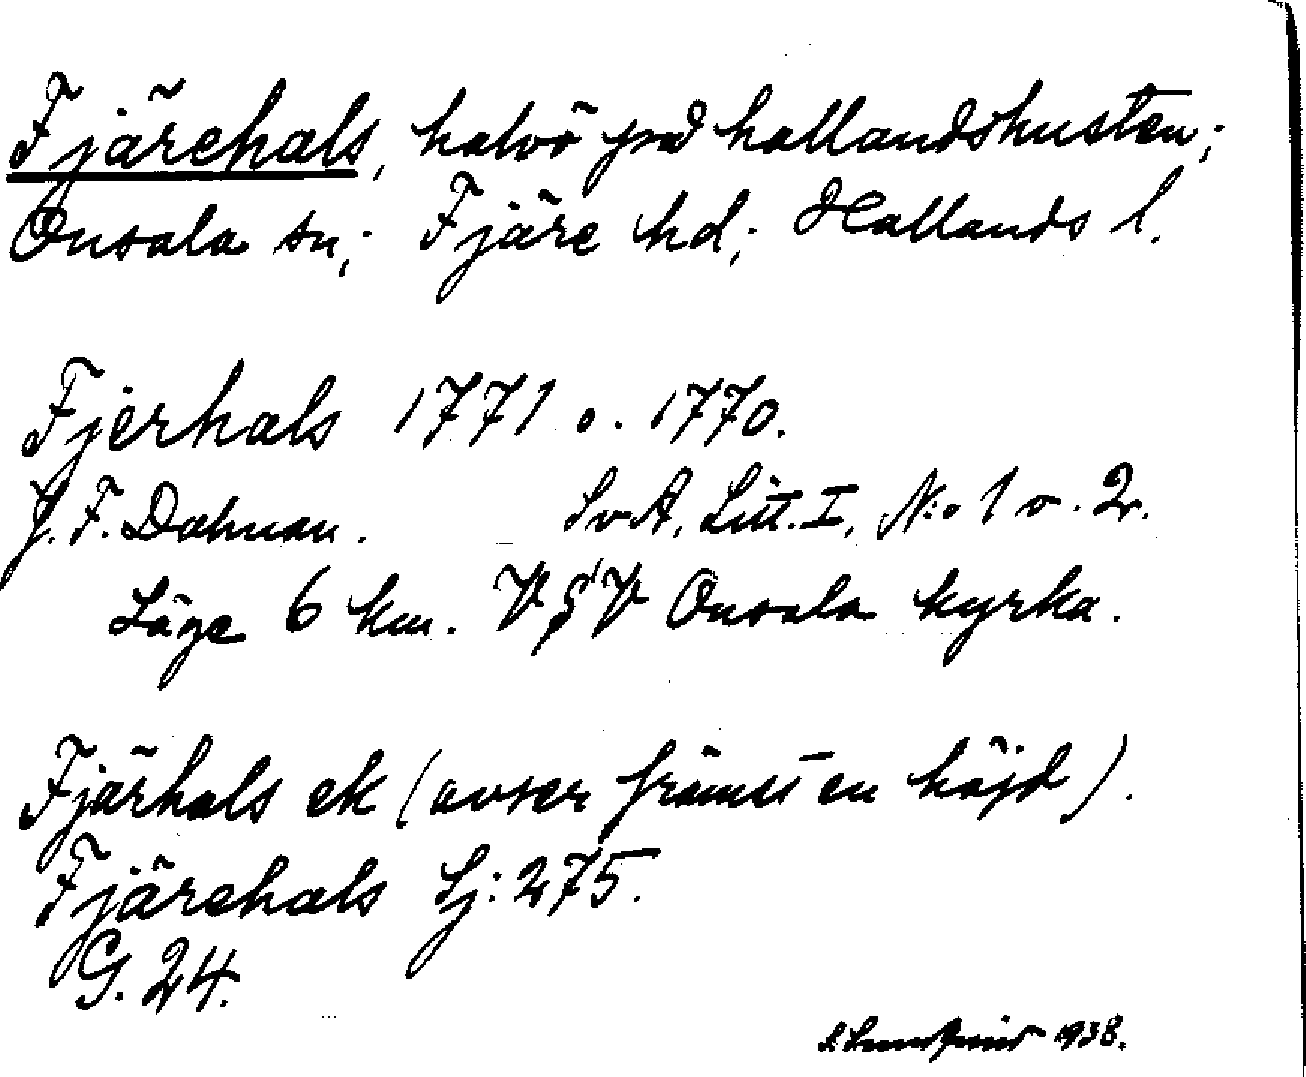 Fjärehals, halvö på hallandskusten;
Onsala sn; Fjäre hd; Hallands l.
Fjerhals 1771 o. 1770.
J. F. Dahman. SvA, Litt. I, N:o 1 o. 2.
Läge 6 km. VSV Onsala kyrka.
Fjärhals ek (avser främst en höjd).
Fjärehals Sj: 275.
G. 24.
Lundqvist 1938.